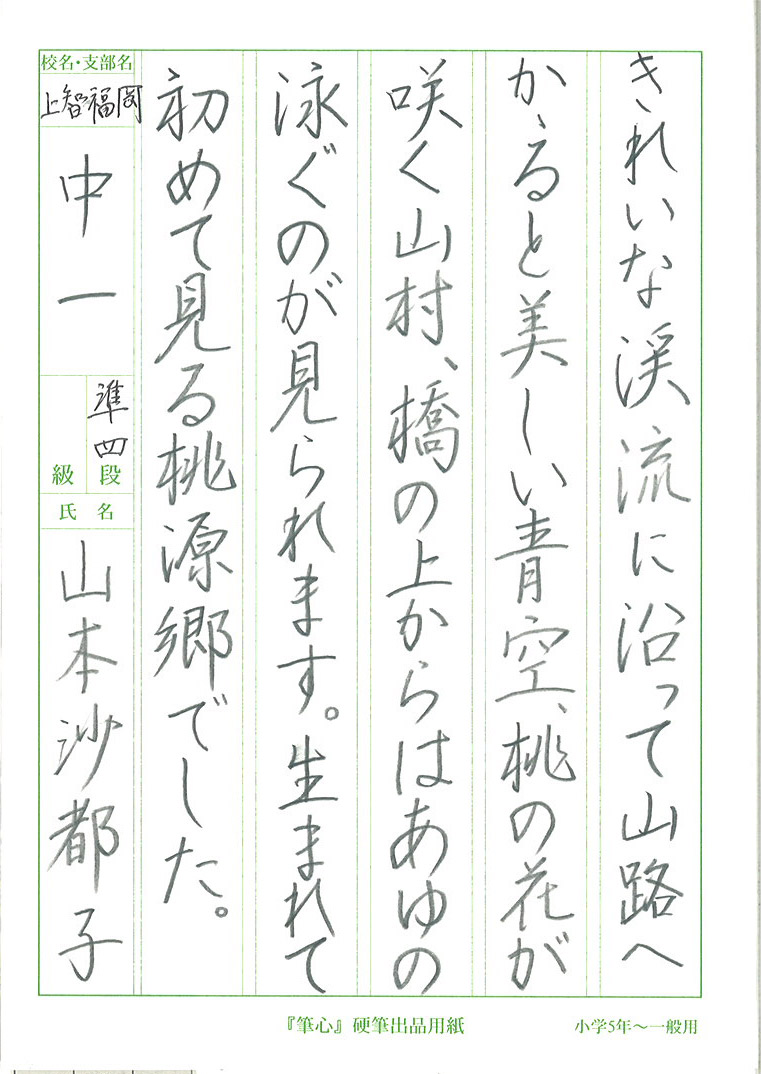 きれいな渓流に沿って山路へ
かゝると美しい青空、桃の花が
咲く山村、橋の上からはあゆの
泳ぐのが見られます。生まれて
初めて見る桃源郷でした。
校名・支部名
上智福岡
中一
準四
段
級
氏名
山本沙都子
『筆心』硬筆出品用紙
小学5年〜一般用